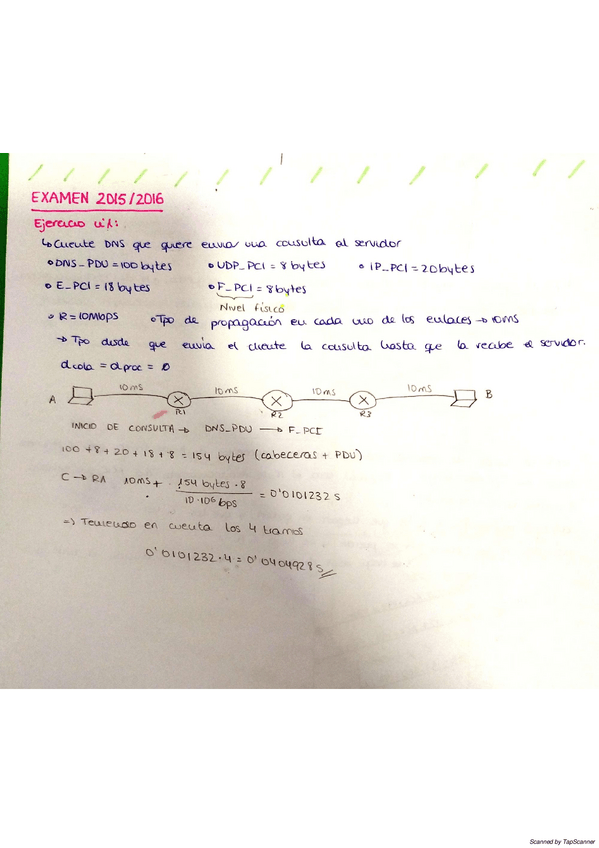 EXAMEN 2015/2016
Ejercicio nº1:
↳ Cliente DNS que quiere enviar una consulta al servidor
• DNS_PDU = 100 bytes • UDP_PCI = 8 bytes • IP_PCI = 20 bytes
• E_PCI = 18 bytes • F_PCI = 8 bytes
Nivel físico
• R = 10Mbps • Tpo de propagación en cada uno de los enlaces → 10ms
→ Tpo desde que envía el cliente la consulta hasta que la recibe el servidor.
dcola = dproc = 0
A 10ms R1 10ms R2 10ms R3 10ms B
INICIO DE CONSULTA → DNS_PDU → F_PCI
100 + 8 + 20 + 18 + 8 = 154 bytes (cabeceras + PDU)
C → RA 10ms + 154 bytes · 8 / 10·10⁶ bps = 0'0101232 s
=> Teniendo en cuenta los 4 tramos
0'0101232 · 4 = 0'0404928 s
Scanned by TapScanner